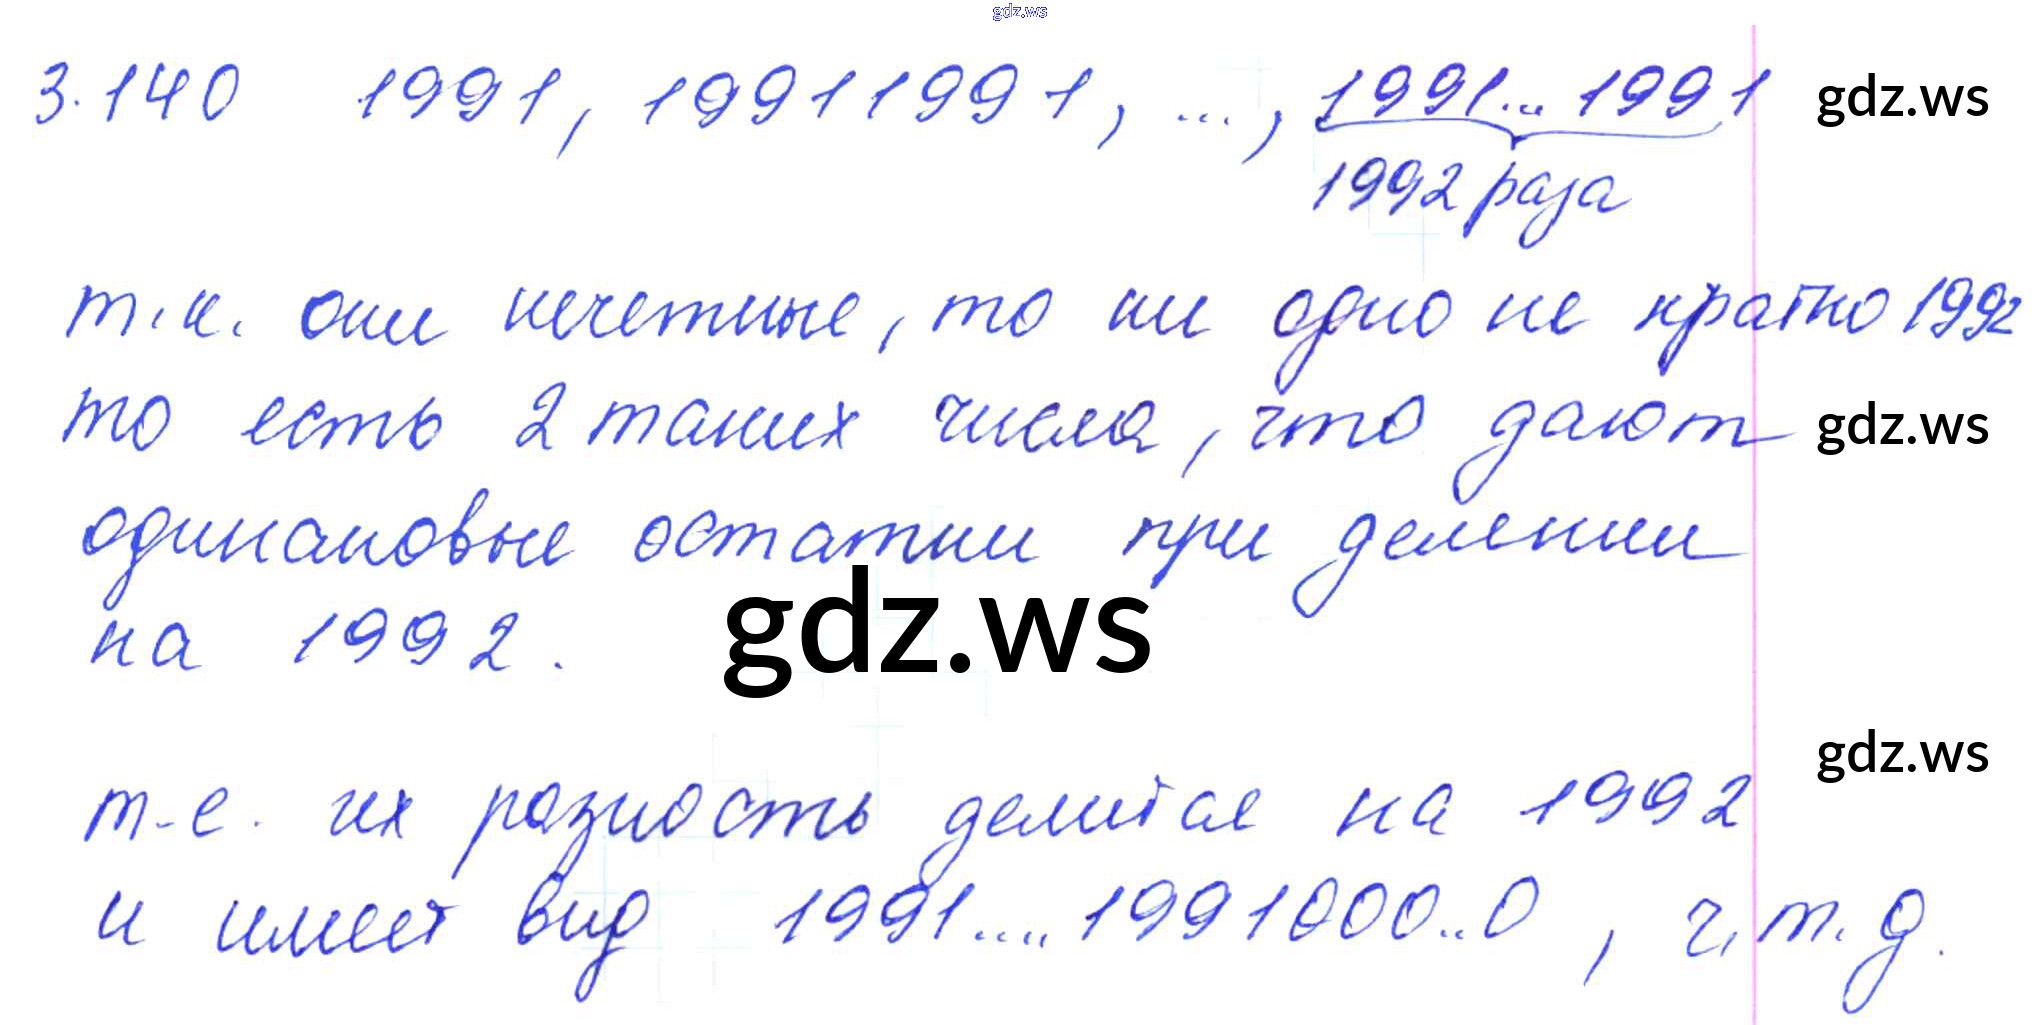 gdz.ws
3.140 1991, 19911991, ..., 1991... 1991 gdz.ws
1992 раза
т.к. они нечетные, то ни одно не кратно 1992
то есть 2 таких числа, что дают gdz.ws
одинаковые остатки при делении
на 1992. gdz.ws
gdz.ws
т.е. их разность делится на 1992
и имеет вид 1991....1991000..0, ч.т.д.